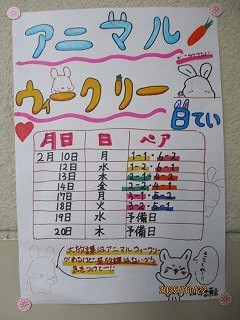 アニマル
ウィークリー
日てい
月日 日 ペア
2月10日 月 1-1・6-2
12日 水 1-2・6-1
13日 木 2-1・4-2
14日 金 2-2・4-1
17日 月 3-1・5-2
18日 火 3-2・5-1
19日 水 予備日
20日 木 予備日
大放課はアニマルウィークリー
があるけど、
気をつけてー!!